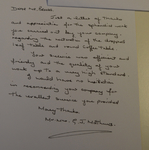 Dear Mr
Just a letter of Thanks
and appreciation for the splendid work
you carried out by your company
regarding the restoration of the dropped
leaf Table and round Coffee Table.
Your service was efficient and
friendly and the quality of your
work up To a very high standard.
I would have no hesitation
in recommending your company for
The excellent service you provided
Many Thanks
Mr & Mrs